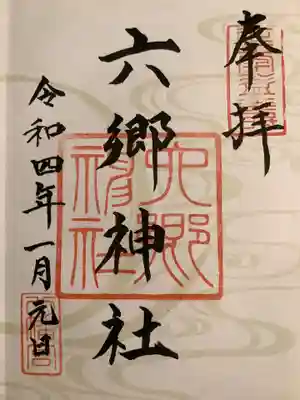 奉拝
六郷神社
令和四年一月元日
六郷
神社